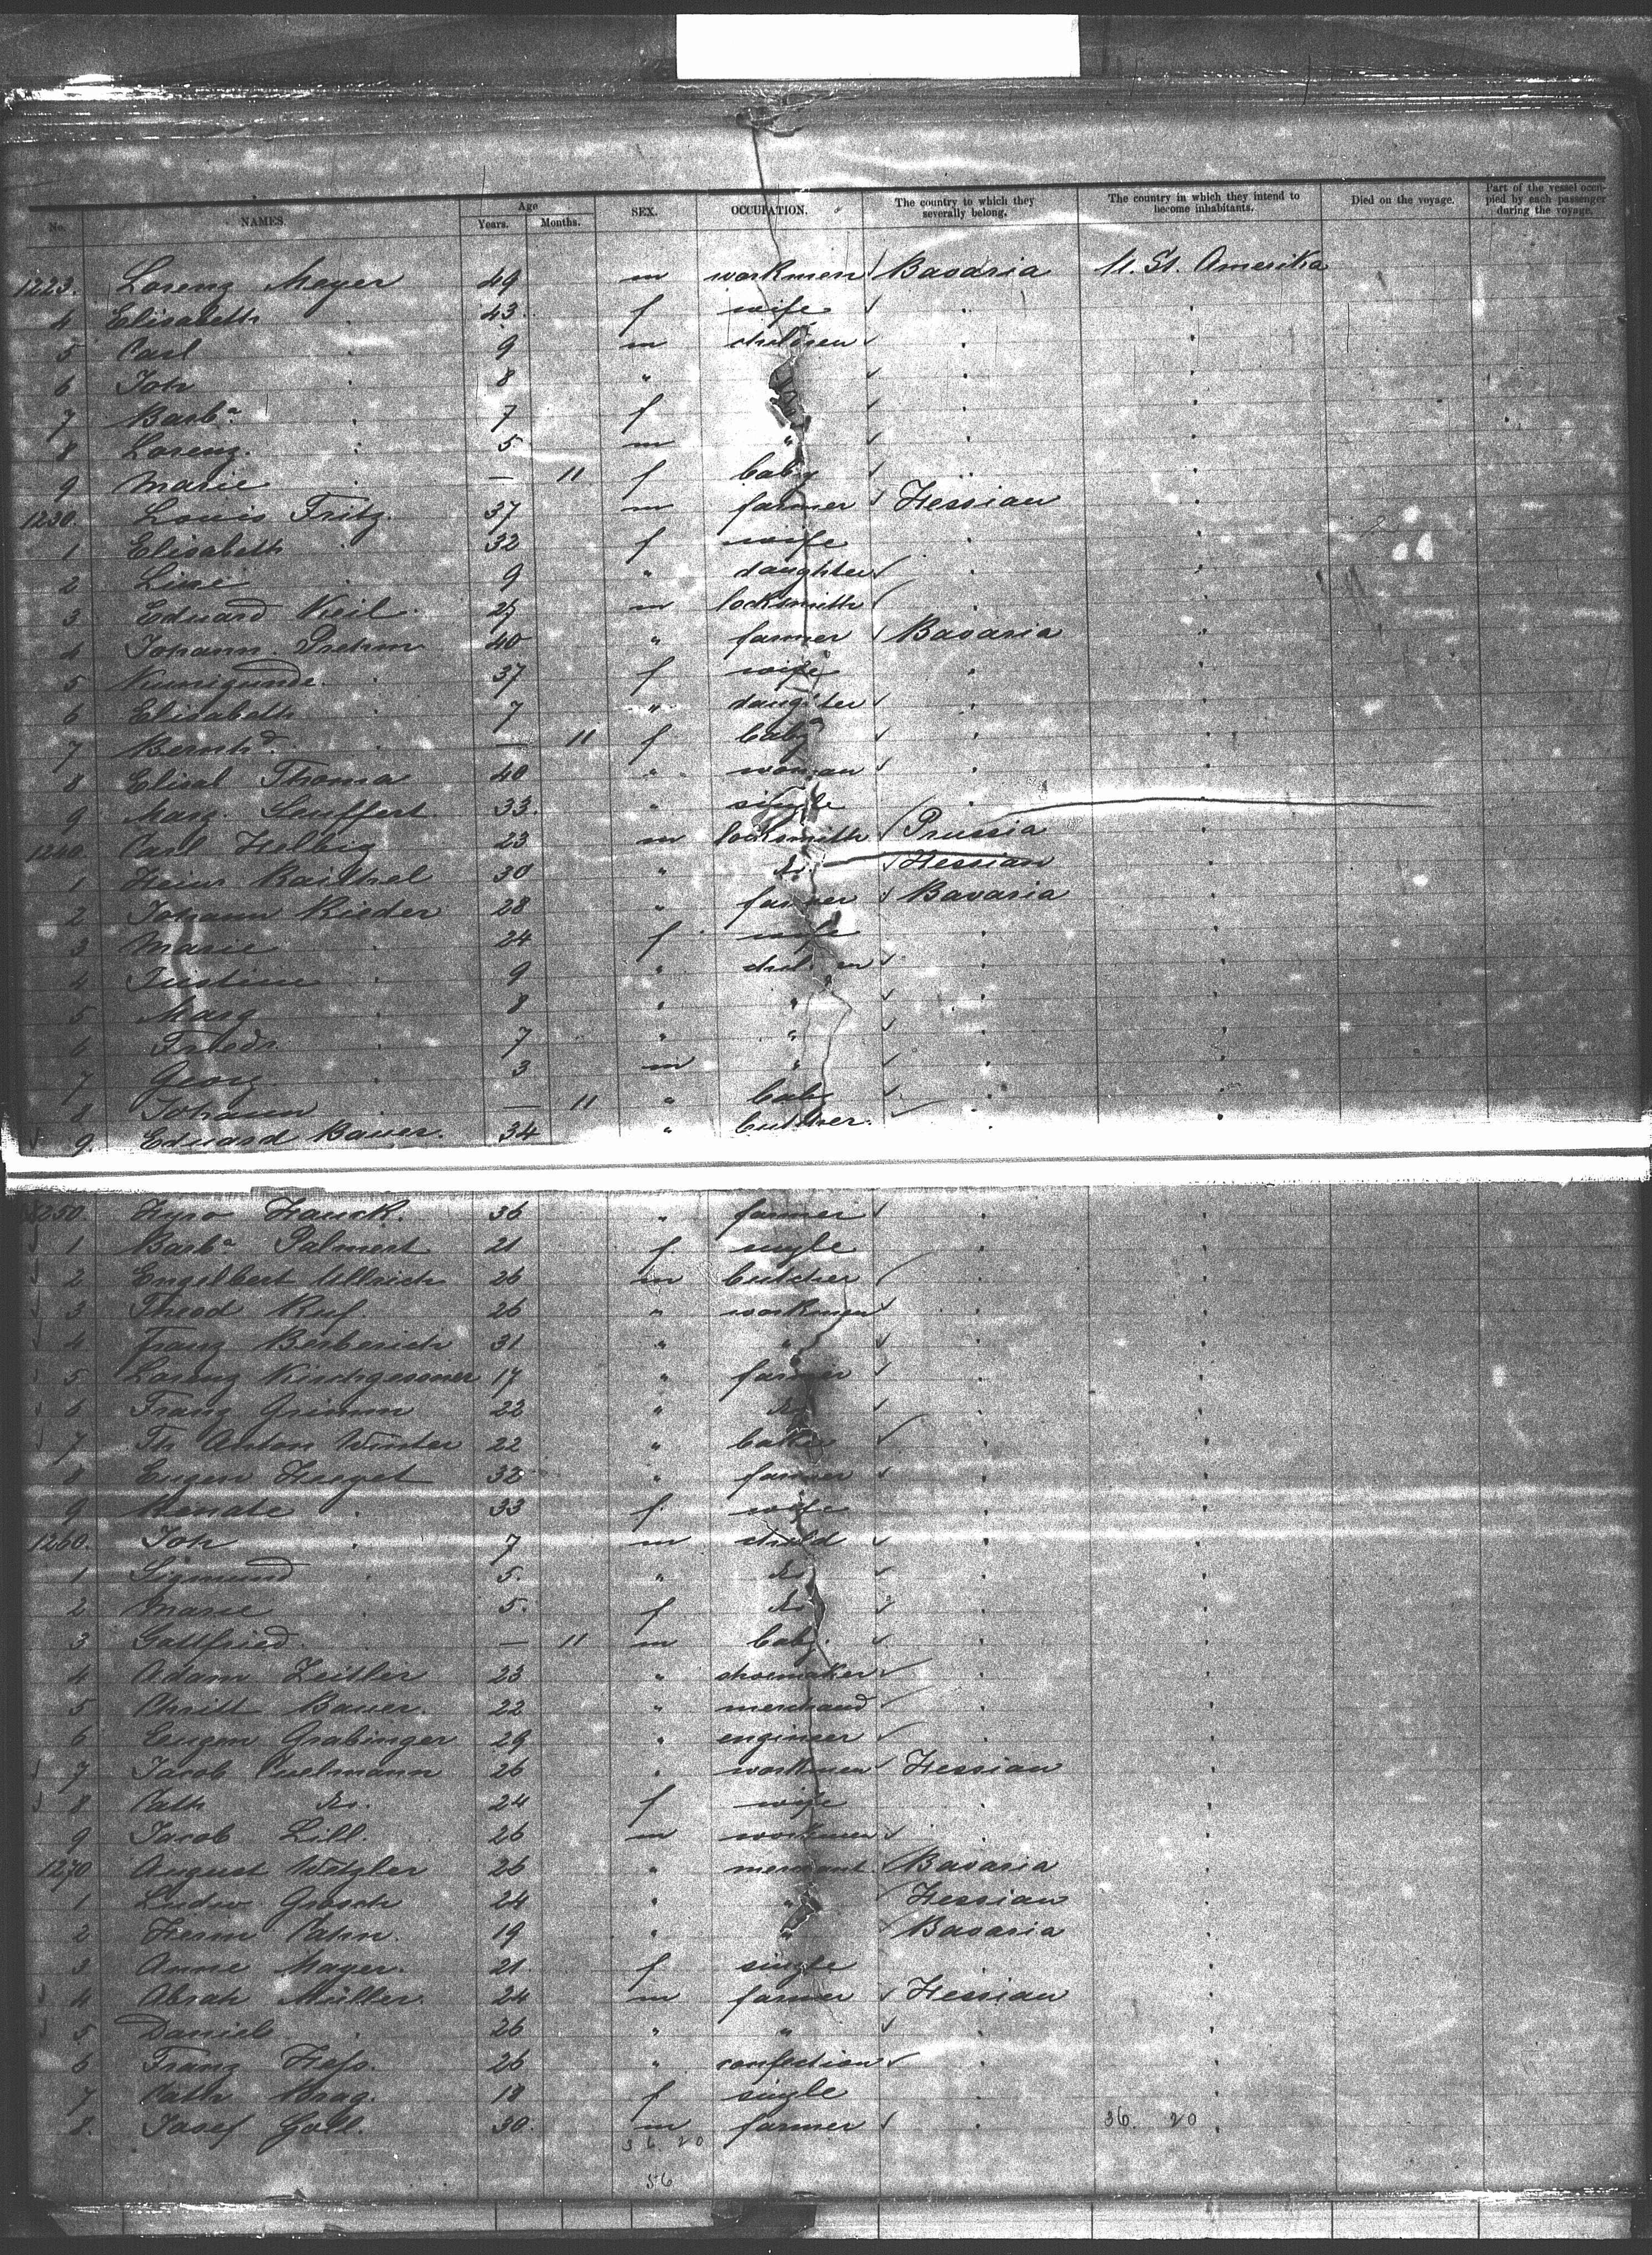 No. NAMES. Age Years. Months. SEX. OCCUPATION. The country to which they severally belong. The country in which they intend to become inhabitants. Died on the voyage. Part of the vessel occupied by each passenger during the voyage.
1223. Lorenz Meyer 49 m workmen Bavaria U. St. Amerika
4 Elisabeth 43 f wife
5 Carl 9 m children
6 Joh 8 "
7 Barba 7 f
8 Lorenz 5 m "
9 Marie — 11 f baby
1230. Louis Fritz 37 m farmer Hessian
1 Elisabeth 32 f wife
2 9 " daughter
3 Eduard Keil 27 m locksmith
4 Johann Prehm 40 " farmer Bavaria
5 Kunigunde 37 f wife
6 Elisabeth 7 " daughter
7 Bernhd — 11 f baby
8 Elisab Thoma 40 " woman
9 Marg. Seuffert 33. " single
1240. Carl Helbig 23 m locksmith Prussia
1 Heinr Raithel 30 " do. Hessian
2 Johann Rieder 28 " farmer Bavaria
3 Marie 24 f wife
4 9 " children
5 Marg 8 " "
6 Friedr 7 " "
7 Georg 3 m "
8 Johann — 11 " baby
9. Eduard Bauer. 34 " butcher.
1250. Hauck. 36 " farmer
1 Barba Palmert 21 f single
2 Engelbert Ullrich 26 m butcher
3 Theod Ruf 26 " workmen
4 Franz Berberich 31 " "
5 Lorenz Kirchgessner 17 " farmer
6 Franz Grimm 22 " do
7 Anton Winter 22 " baker
8 Eugen 32 " farmer
9 Renate 33 f wife
1260. Joh 7 m child
1 Sigmund 5. " do
2 Marie 5. f do
3 Gottfried — 11 m baby.
4 Adam Zeitler 23 " shoemaker
5 Christ Bauer. 22 " merchand
6 Eugen Grabinger 29 " engineer
7 Jacob 26 " workmen Hessian
8 Cath do. 24 f wife
9 Jacob Lill. 26 m workmen
1270 August Witzler 26 " merchant Bavaria
1 Ludw Grosch 24 " " Hessian
2 Herm Cahn. 19 " " Bavaria
3 Anne Mayer. 21 f single
4 Abrah Müller. 24 m farmer Hessian
5 Daniel 26 " "
6 Franz Hess. 26 " confection
7 Cath 18 f single
8. Josef Goll. 30. m farmer 36. 20
36 20
56